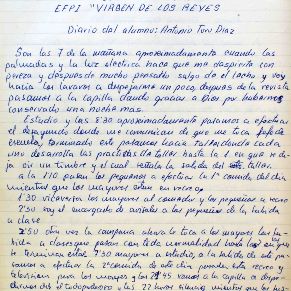 EFPI "VIRGEN DE LOS REYES
Diario del alumno: Antonio Toro Diaz
Son las 7 de la mañana aproximadamente cuando las
palmadas y la luz electrica hace que me despierte con
pereza y despues de mucho pensarlo salgo de el lecho y voy
hacia los lavavos a despejarme un poco, despues de la revista
pasamos a la capilla dando gracias a Dios por habernos
conservado una noche mas.
Estudio y las 8'30 aproximadamente pasamos a efectuar
el desayuno donde me comunican de que me toca jefe de
escuela, terminado este pasamos hacia talleres cada
uno desarrolla las practicas de taller hasta la 1 en que se de-
ja oir un timbre y el cual señala la salida del taller.
a la 1'10 pasan los pequeños a efectuar la 1ª comida del dia
mientras que los mayores estan en recreo
1'30 vicerversa los mayores al comedor y los pequeños a recreo
2'30 soy el encargado de avisar a los pequeños de la subida
a clase
2'50 otra vez la campana ahora le toca a los mayores la su-
bida a clases que pasan con toda normalidad hasta las
se terminan estas 7'30 mayores a estudio, a la salida de este pa-
samos a efectuar la 2ª comida de este dia pasada, esta recreo y
television para los mayores y las 21'45 vamos a la capilla a despe-
dirnos del todopoderoso y las 22 horas silencio mientras que los